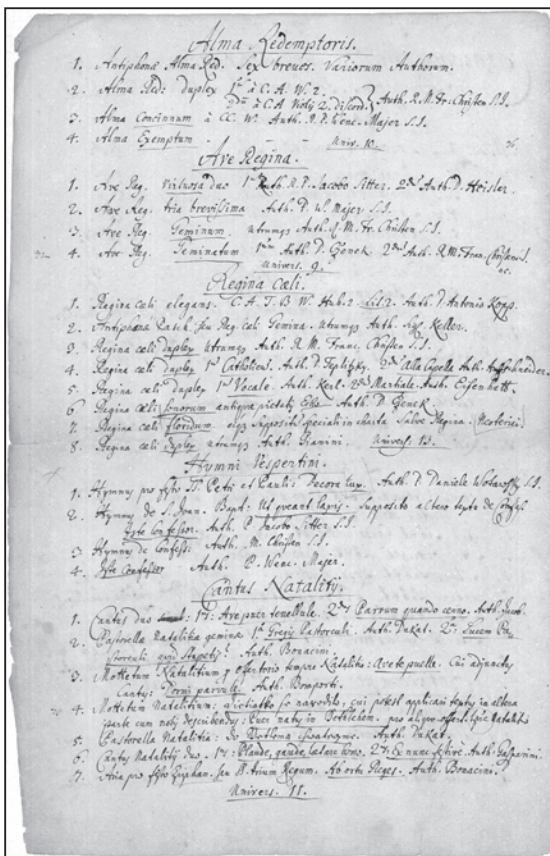 Alma Redemptoris.
1. Antiphonæ Alma Red. Sex breves. Variorum Authorum.
2. Alma Red: duplex 1um à C. A. W. 2.
2dum à C. A Violij 2. discord. Auth. R. M. Fr. Christen S. I.
3. Alma Concinnum à CC. W. Auth. R. P. Wenc. Majer S. I.
4. Alma Exemptum - - -
Univ. 10.
Ave Regina.
1. Ave Reg. virtuosa duo 1um Auth. R. P. Jacobo Sitter. 2dum Auth. D. Heisler.
2. Ave Reg. tria brevissima Auth. P. W. Majer S. I.
3. Ave Reg. Geminum utrumqs Auth. R. M. Fr. Christen S. I.
4. Ave Reg. Geminatum 1um Auth. D. Czenek 2dum Auth. R. M. Fran. Christen S.
Univers. 9.
Regina Cæli.
1. Regina cæli elegans. C. A. T. B W. Hub. 2. Lit. 2. Auth. D. Antonio
2. Antiphona Pasch. seu Reg. cæli Gemina. utrumqs Auth. Sigr Keller.
3. Regina cæli duplex utrumqs Auth. R. M. Franc. Christen S. I.
4. Regina cæli duplex 1um Catholicu. Auth. D. Teplitzky. 2dum Alla Capella Auth. Aufschneider.
5. Regina cæli duplex 1um Vocale. Auth. Kerl. 2dum Martiale. Auth. Eisenhett.
6 Regina cæli sonorum antiqua pietatis Auth D. Czenek.
7. Regina cæli floridum eiqs supposito speciali in charta Salve Regina.
8. Regina cæli duplex utrumqs Auth. Gianini. Univers: 13.
Hymni Vespertini.
1. Hymnus pro festo SS. Petri et Pauli: Decora lux. Auth. D. Daniele S. I.
2. Hymnus de S. Joan. Bapt: Ut queant laxis. Supposito altero textu de Confess.
Iste Confessor. Auth. P. Jacobo Sitter S. I.
3 Hymnus de Confess: Auth. M. Christen S. I.
4. Iste Confessor Auth. P. Wenc. Majer.
Cantus Natalitij.
1. Cantus duo 1us: Ave puer tenellule. 2dus Parvum quando cerno. Auth. Jacob.
2. Pastorella Natalitia gemina 1a Gregis Pastorculi. Auth. Dukat. 2a: Lucem
Auth. Bonacini.
3. Mottetum Natalitium p offertorio tempore Natalitio: Avete puelle. Cui adjunctus
Cantus: Dormi parvule. Auth. Bomporti.
4. Mottetum Natalitium: Diettatko se narodilo, cui potest applicari textus in altera
parte cum notis describendus: Puer natus in Bethlehem. pro aliquo offert.
5. Pastorella Natalitia: do Betlema Auth. Dukat.
6. Cantus Natalitij duo. 1us: Plaude, gaude, lætare homo. 2us: Ex nunc Auth. Gasparini.
7. Aria pro festo Epiphan. seu SS. Trium Regum. Ab ortu Reges. Auth. Bonacini.
Univers. 11.